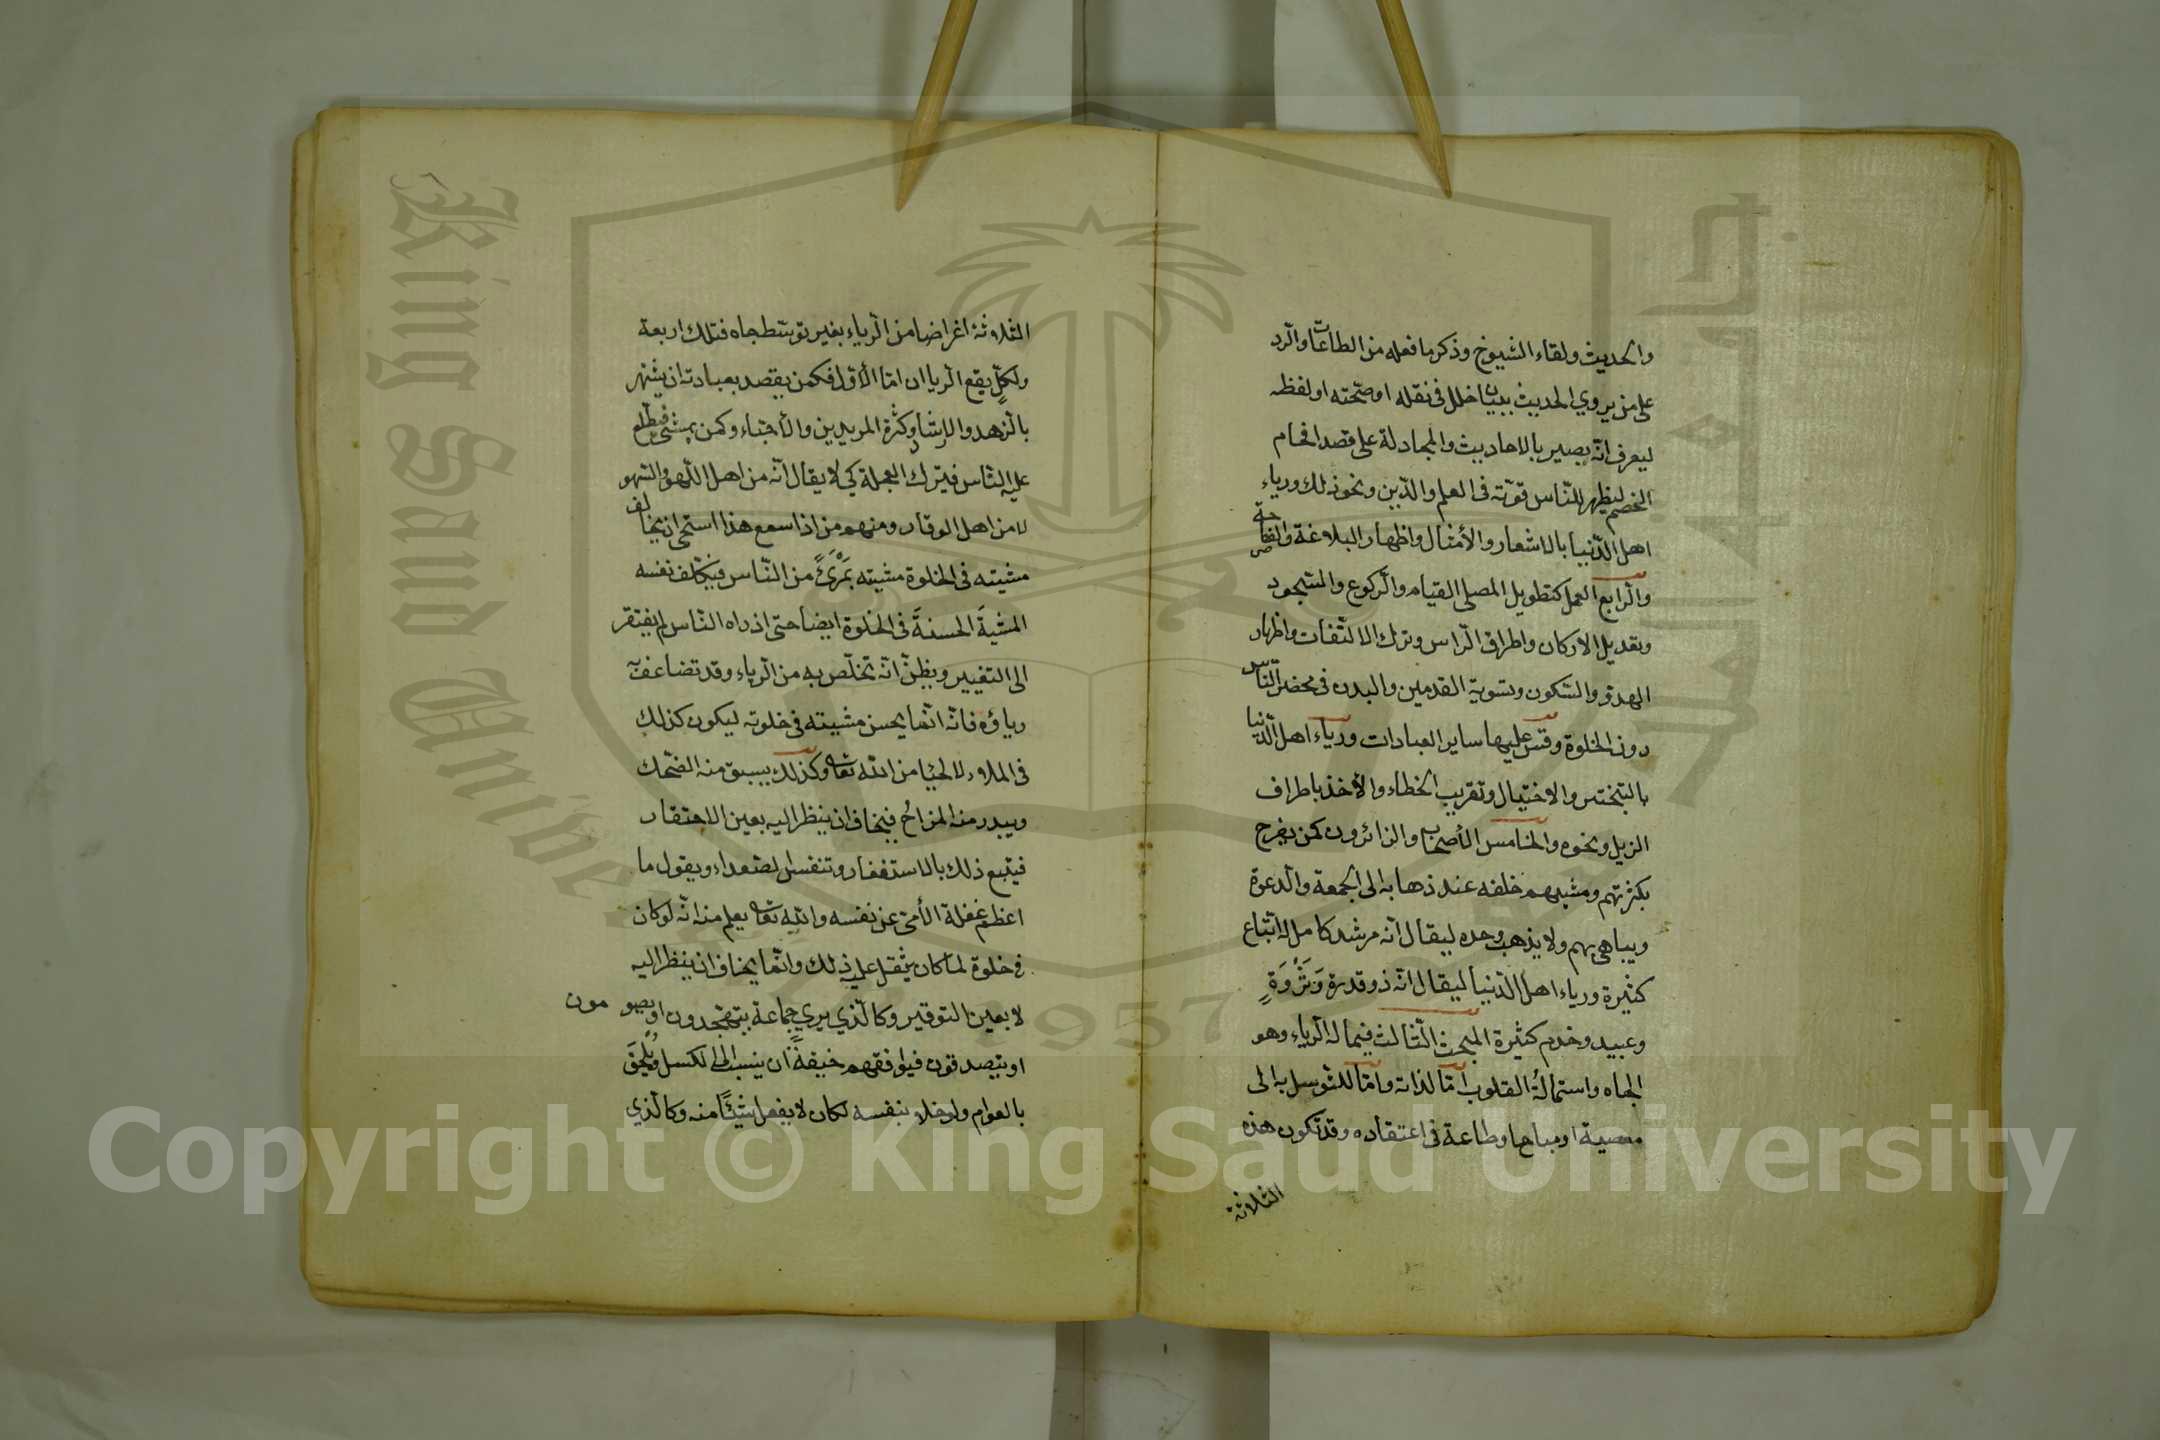 والحديث ولقاء الشيوخ وذكر ما فعله من الطاعات والرد
على من يروي الحديث ببيان خلل في نقله او صحته او لفظه
ليعرف انّه بصير بالاحاديث والمجادلة على قصد افحام
الخصم ليظهر للنّاس قوّته في العلم والدّين ونحو ذلك ورياء
اهل الدّنيا بالاشعار والأمثال واظهار البلاغة والفصاحة
والرّابع العمل كتطويل المصلى القيام والرّكوع والسّجود
وتعديل الاركان واطراق الرّاس وترك الالتفات واظهار
الهدوّ والسّكون وتسوية القدمين واليدين في محضر النّاس
دون الخلوة وقس عليها ساير العبادات ورياء اهل الدّنيا
بالتبختر والاختيال وتقريب الخطاء والأخذ باطراف
الزيل ونحوه والخامس الأصحاب والزائرون كمن يفرح
بكثرتهم ومشيهم خلفه عند ذهابه الى الجمعة والدعوة
ويباهي بهم ولا يذهب وحده ليقال انّه مرشد كامل له اتباع
كثيرة ورياء اهل الدّنيا ليقال انّه ذو قدرة وَثَرْوَةٍ
وعبيد وخدم كثيرة المبحث الثّالث فيما له الرّياء وهو
الجاه واستمالةُ القلوب امّا لذاته وامّا للتّوسل به الى
معصية او مباح او طاعة في اعتقاده وقد تكون هذه
الثلاثة
الثلاثة اغراضا من الرّياء بغير توسّط جاه فتلك اربعة
ولكلّ يقع الرّياان امّا الأوّل فكمن يقصد بعبادته ان يشتهر
بالزّهد والارشاد وكثرة المريدين والأحبّاء وكمن يمشي فيطّلع
عليه النّاس فيترك العجلة كي لا يقال انّه من اهل اللّهو والسّهو
لا من اهل الوقار ومنهم من اذا سمع هذا استحى ان يخالف
مشيته في الخلوة مشيته بَمْرَئً من النّاس فيكلّف نفسه
المشيةَ الحسنةَ في الخلوة ايضا حتى اذ راه النّاس لم يفتقر
الى التغيير ويظنّ انّه تخلّص به من الرّياء وقد تضاعف به
رياؤه فانّه انّما يحسن مشيته في خلوته ليكون كذلك
في الملاء لا لحيا من الله تعالى وكذلك يسبق منه الضّحك
ويبدر منه المزاحُ فيخاف ان ينظر اليه بعين الاحتقار
فيتبع ذلك بالاستغفار وتنفس الصّعداء ويقول ما
اعظم غفلة الأمىّ عن نفسه والله تعالى يعلم منه انّه لو كان
في خلوة لما كان يثقل عليه ذلك وانّما يخاف ان ينظر اليه
لا بعين التوقير وكالّذي يري جماعة يتهجّدون او يصومون
او يتصدّقون فيوافقهم خيفةً ان ينسب الى الكسل ويُلْحَقَ
بالعوام ولو خلا بنفسه لكان لا يفعل شيئًا منه وكالّذي